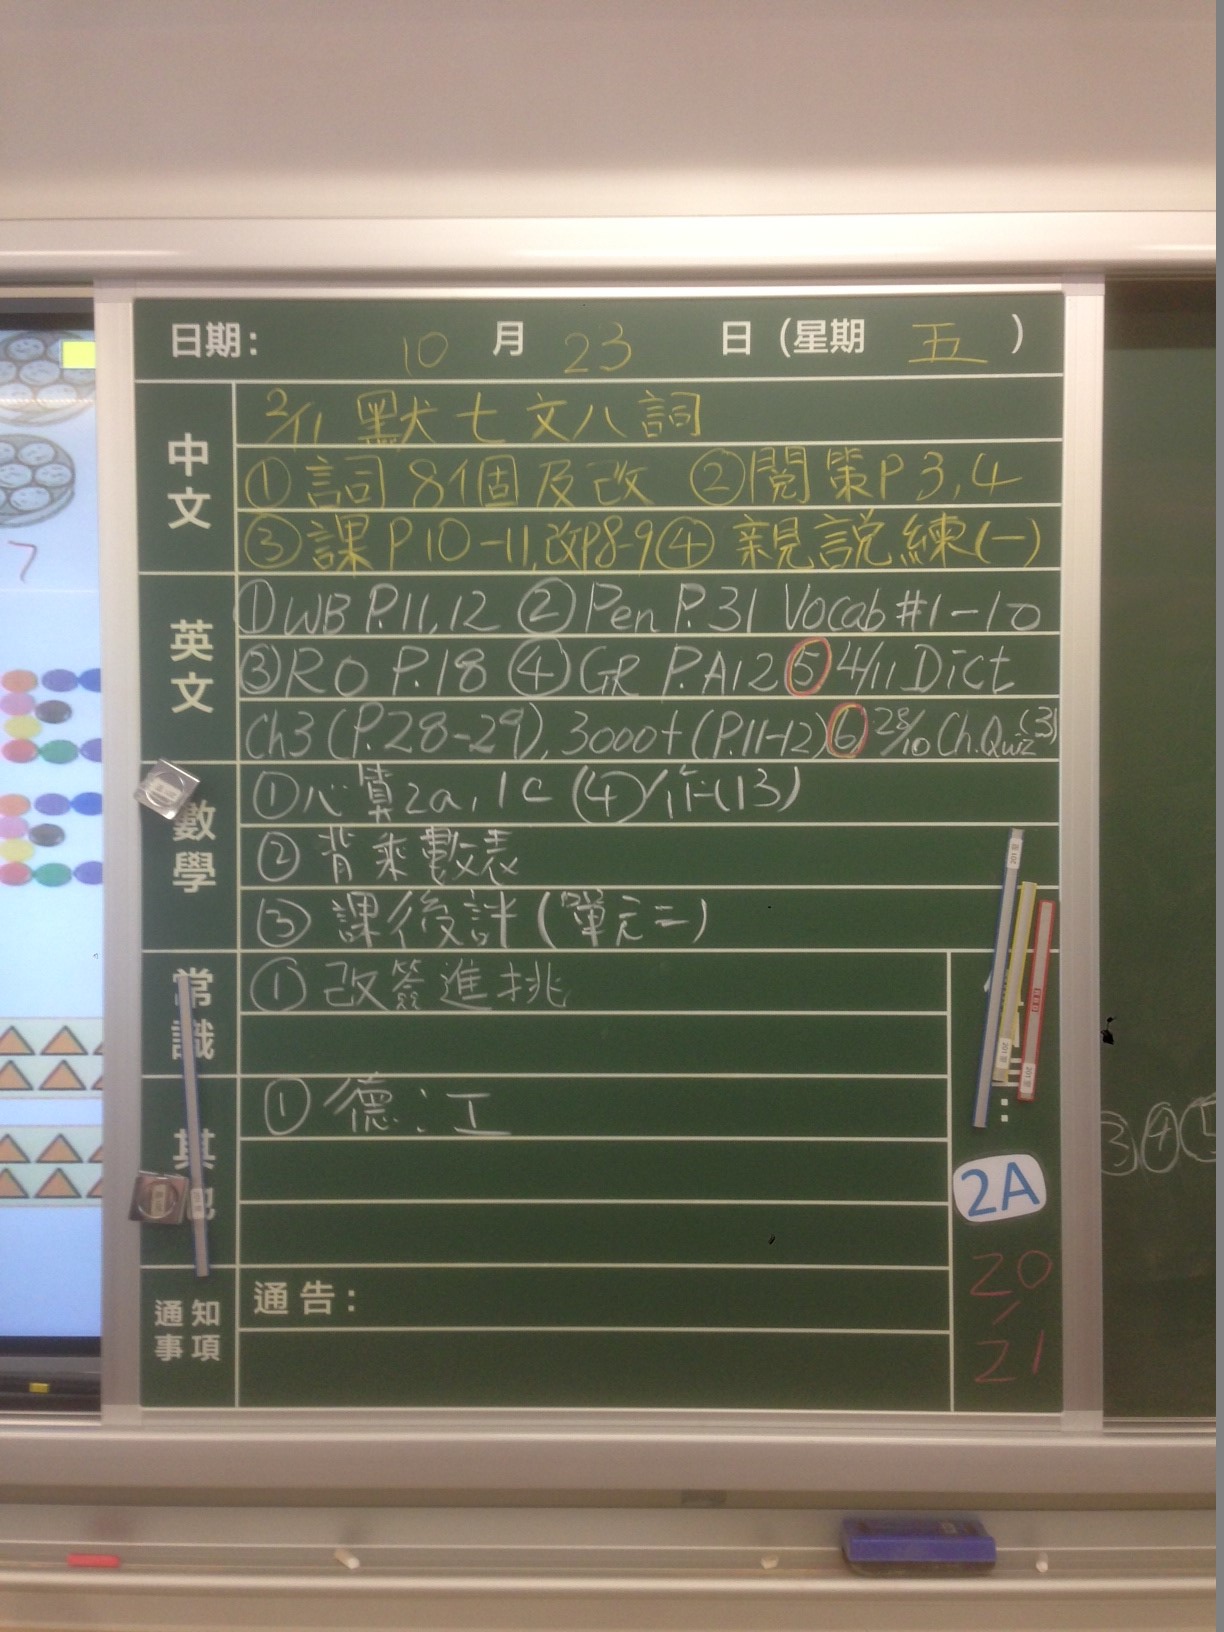 日期: 10 月 23 日 (星期 五 )
中文
2/11 默七文八詞
①詞8個及改 ②閱策P.3,4
③課P10-11,改P8-9④ 親說練(一)
英文
①WB P.11,12 ②Pen P.31 Vocab #1-10
③RO P.18 ④GR P.A12 ⑤4/11 Dict
Ch3 (P.28-29), 3000+ (P.11-12) ⑥28/10 Ch.Quiz(3)
數學
①心算2a,1c ④作(13)
②背乘數表
③課後評(單元二)
常識
①改簽進挑
其他
①德:工
2A
20/21
通知事項
通告:
7
③④⑤